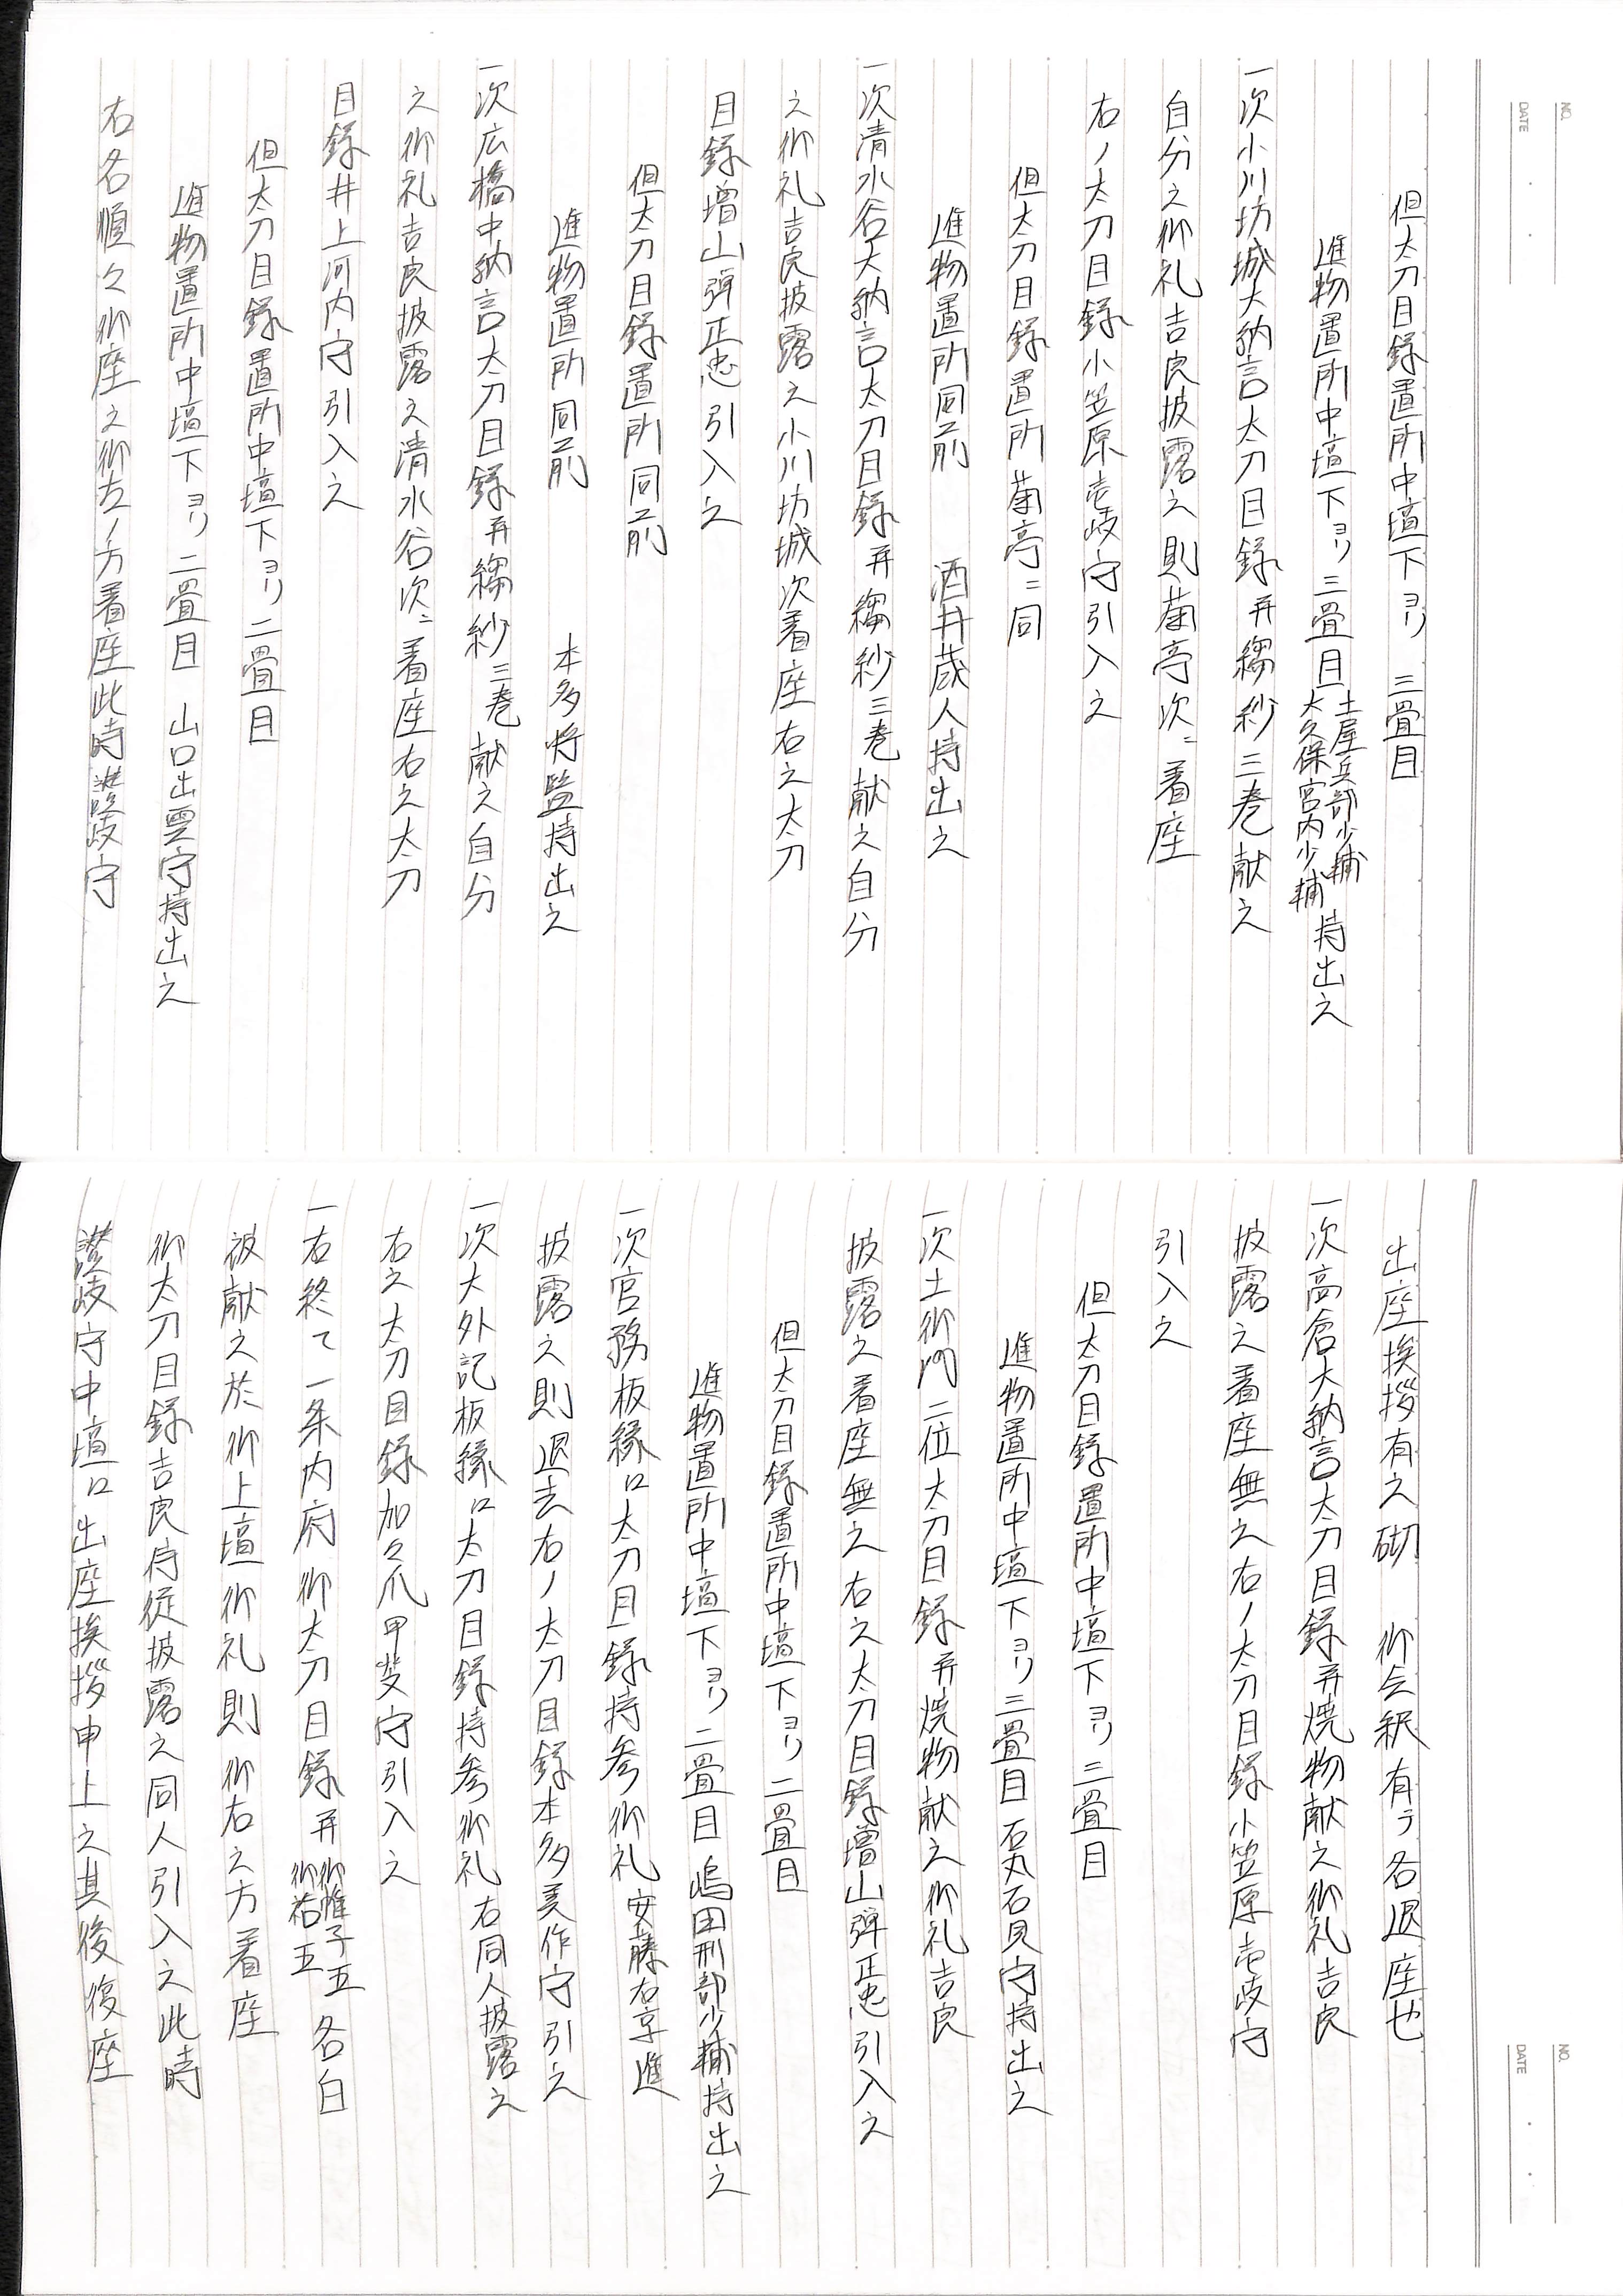 NO.
DATE
但太刀目録置所中壇下ヨリ三畳目
進物置所中壇下ヨリ三畳目 土屋兵部少輔 大久保宮内少輔 持出之
一次小川坊城大納言太刀目録并縐紗三巻献之
自分之御礼吉良披露之則菊亭次ニ着座
右ノ太刀目録小笠原壱岐守引入之
但太刀目録置所菊亭ニ同
進物置所同前 酒井蔵人持出之
一次清水谷大納言太刀目録并縐紗三巻献之自分
之御礼吉良披露之小川坊城次着座右之太刀
目録増山弾正忠引入之
但太刀目録置所同前
進物置所同前 本多将監持出之
一次広橋中納言太刀目録并縐紗三巻献之自分
之御礼吉良披露之清水谷次ニ着座右之太刀
目録井上河内守引入之
但太刀目録置所中壇下ヨリ二畳目
進物置所中壇下ヨリ二畳目 山口出雲守持出之
右各順々御座之御左ノ方着座此時讃岐守
NO.
DATE
出座挨拶有之砌 御会釈有テ各退座也
一次高倉大納言太刀目録并焼物献之御礼吉良
披露之着座無之右ノ太刀目録小笠原壱岐守
引入之
但太刀目録置所中壇下ヨリ三畳目
進物置所中壇下ヨリ三畳目 石丸石見守持出之
一次土御門二位太刀目録并焼物献之御礼吉良
披露之着座無之右之太刀目録増山弾正忠引入之
但太刀目録置所中壇下ヨリ二畳目
進物置所中壇下ヨリ二畳目嶋田刑部少輔持出之
一次官務板縁ロ太刀目録持参御礼 安藤右京進
披露之則退去右ノ太刀目録本多美作守引之
一次大外記板縁ロ太刀目録持参御礼 右同人披露之
右之太刀目録加々爪甲斐守引入之
一右終て一条内府御太刀目録并 御帷子五 御袷五 各自
被献之於御上壇御礼則御右之方着座
御太刀目録吉良侍従披露之同人引入之此時
讃岐守中壇ロ出座挨拶申上之其後復座